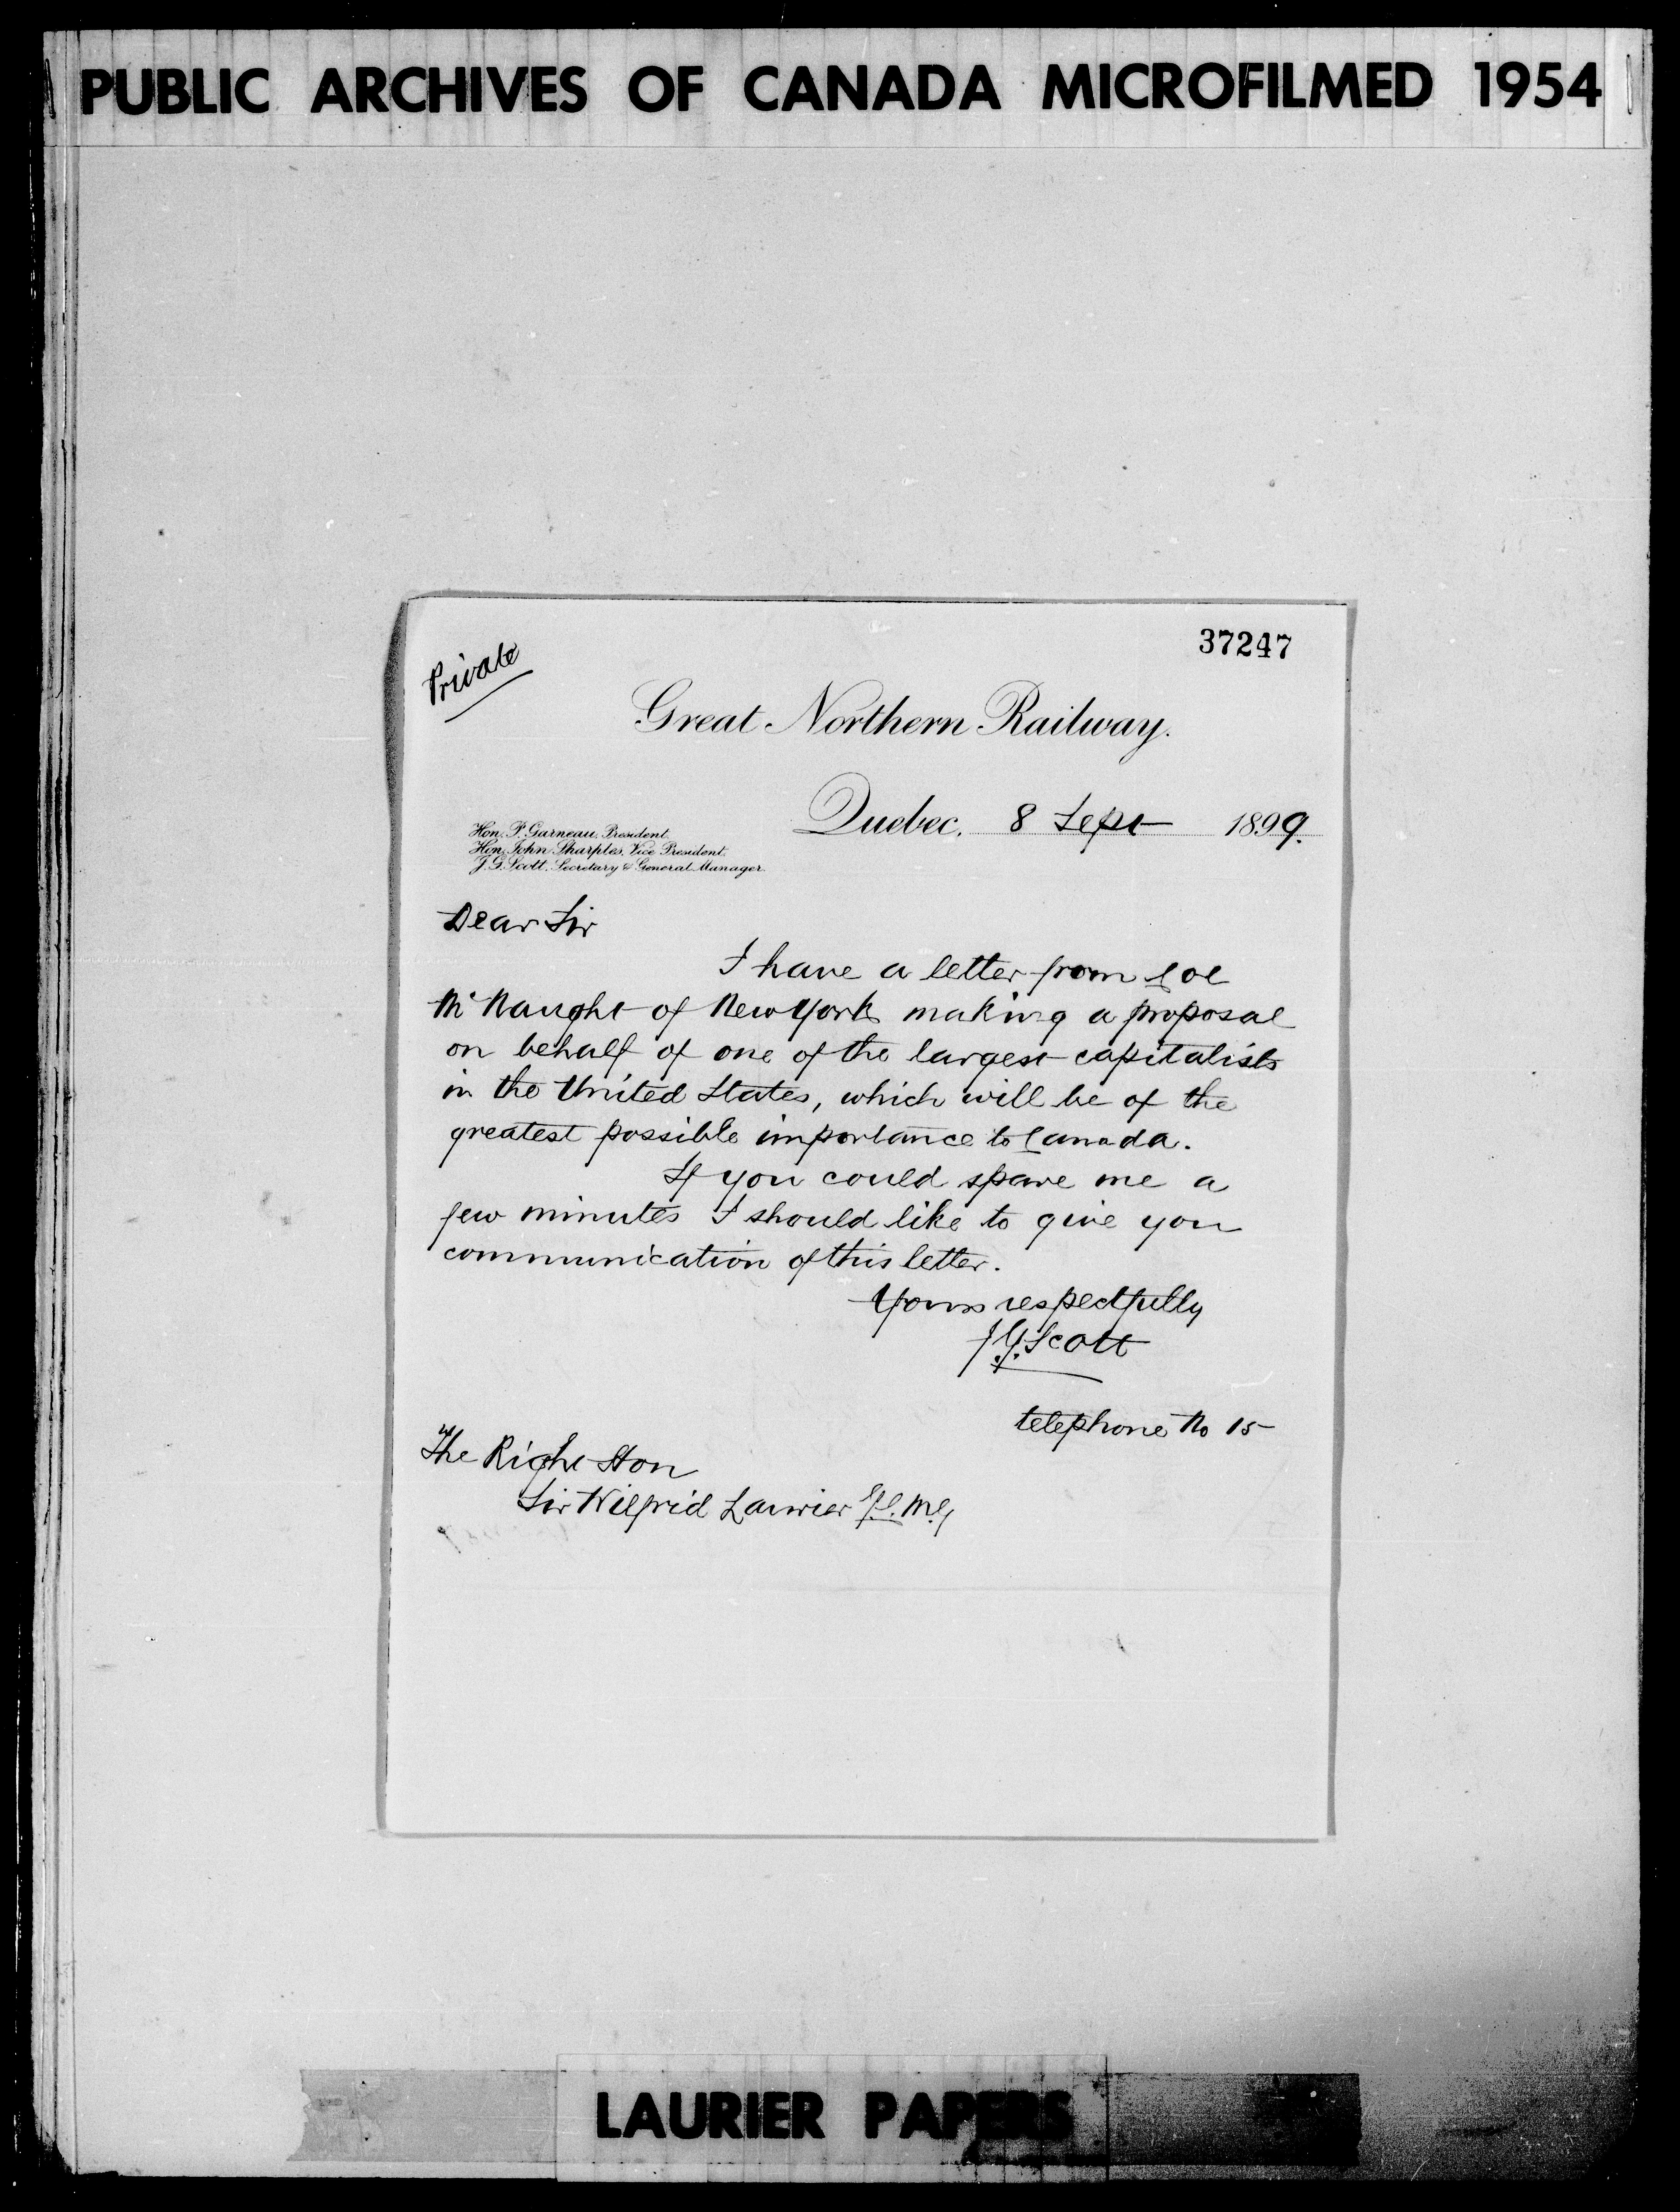 PUBLIC ARCHIVES OF CANADA MICROFILMED 1954
37247
Private
Great Northern Railway.
Quebec, 8 Sept 1899.
Hon. P. Garneau, President.
Hon. John Sharples, Vice President.
J. G. Scott, Secretary & General Manager.
Dear Sir
I have a letter from Col
McNaught of New York making a proposal
on behalf of one of the largest capitalists
in the United States, which will be of the
greatest possible importance to Canada.
If you could spare me a
few minutes I should like to give you
communication of this letter.
Yours respectfully
J.G. Scott
telephone No 15
The Right Hon
Sir Wilfrid Laurier G.C.M.G
LAURIER PAPERS